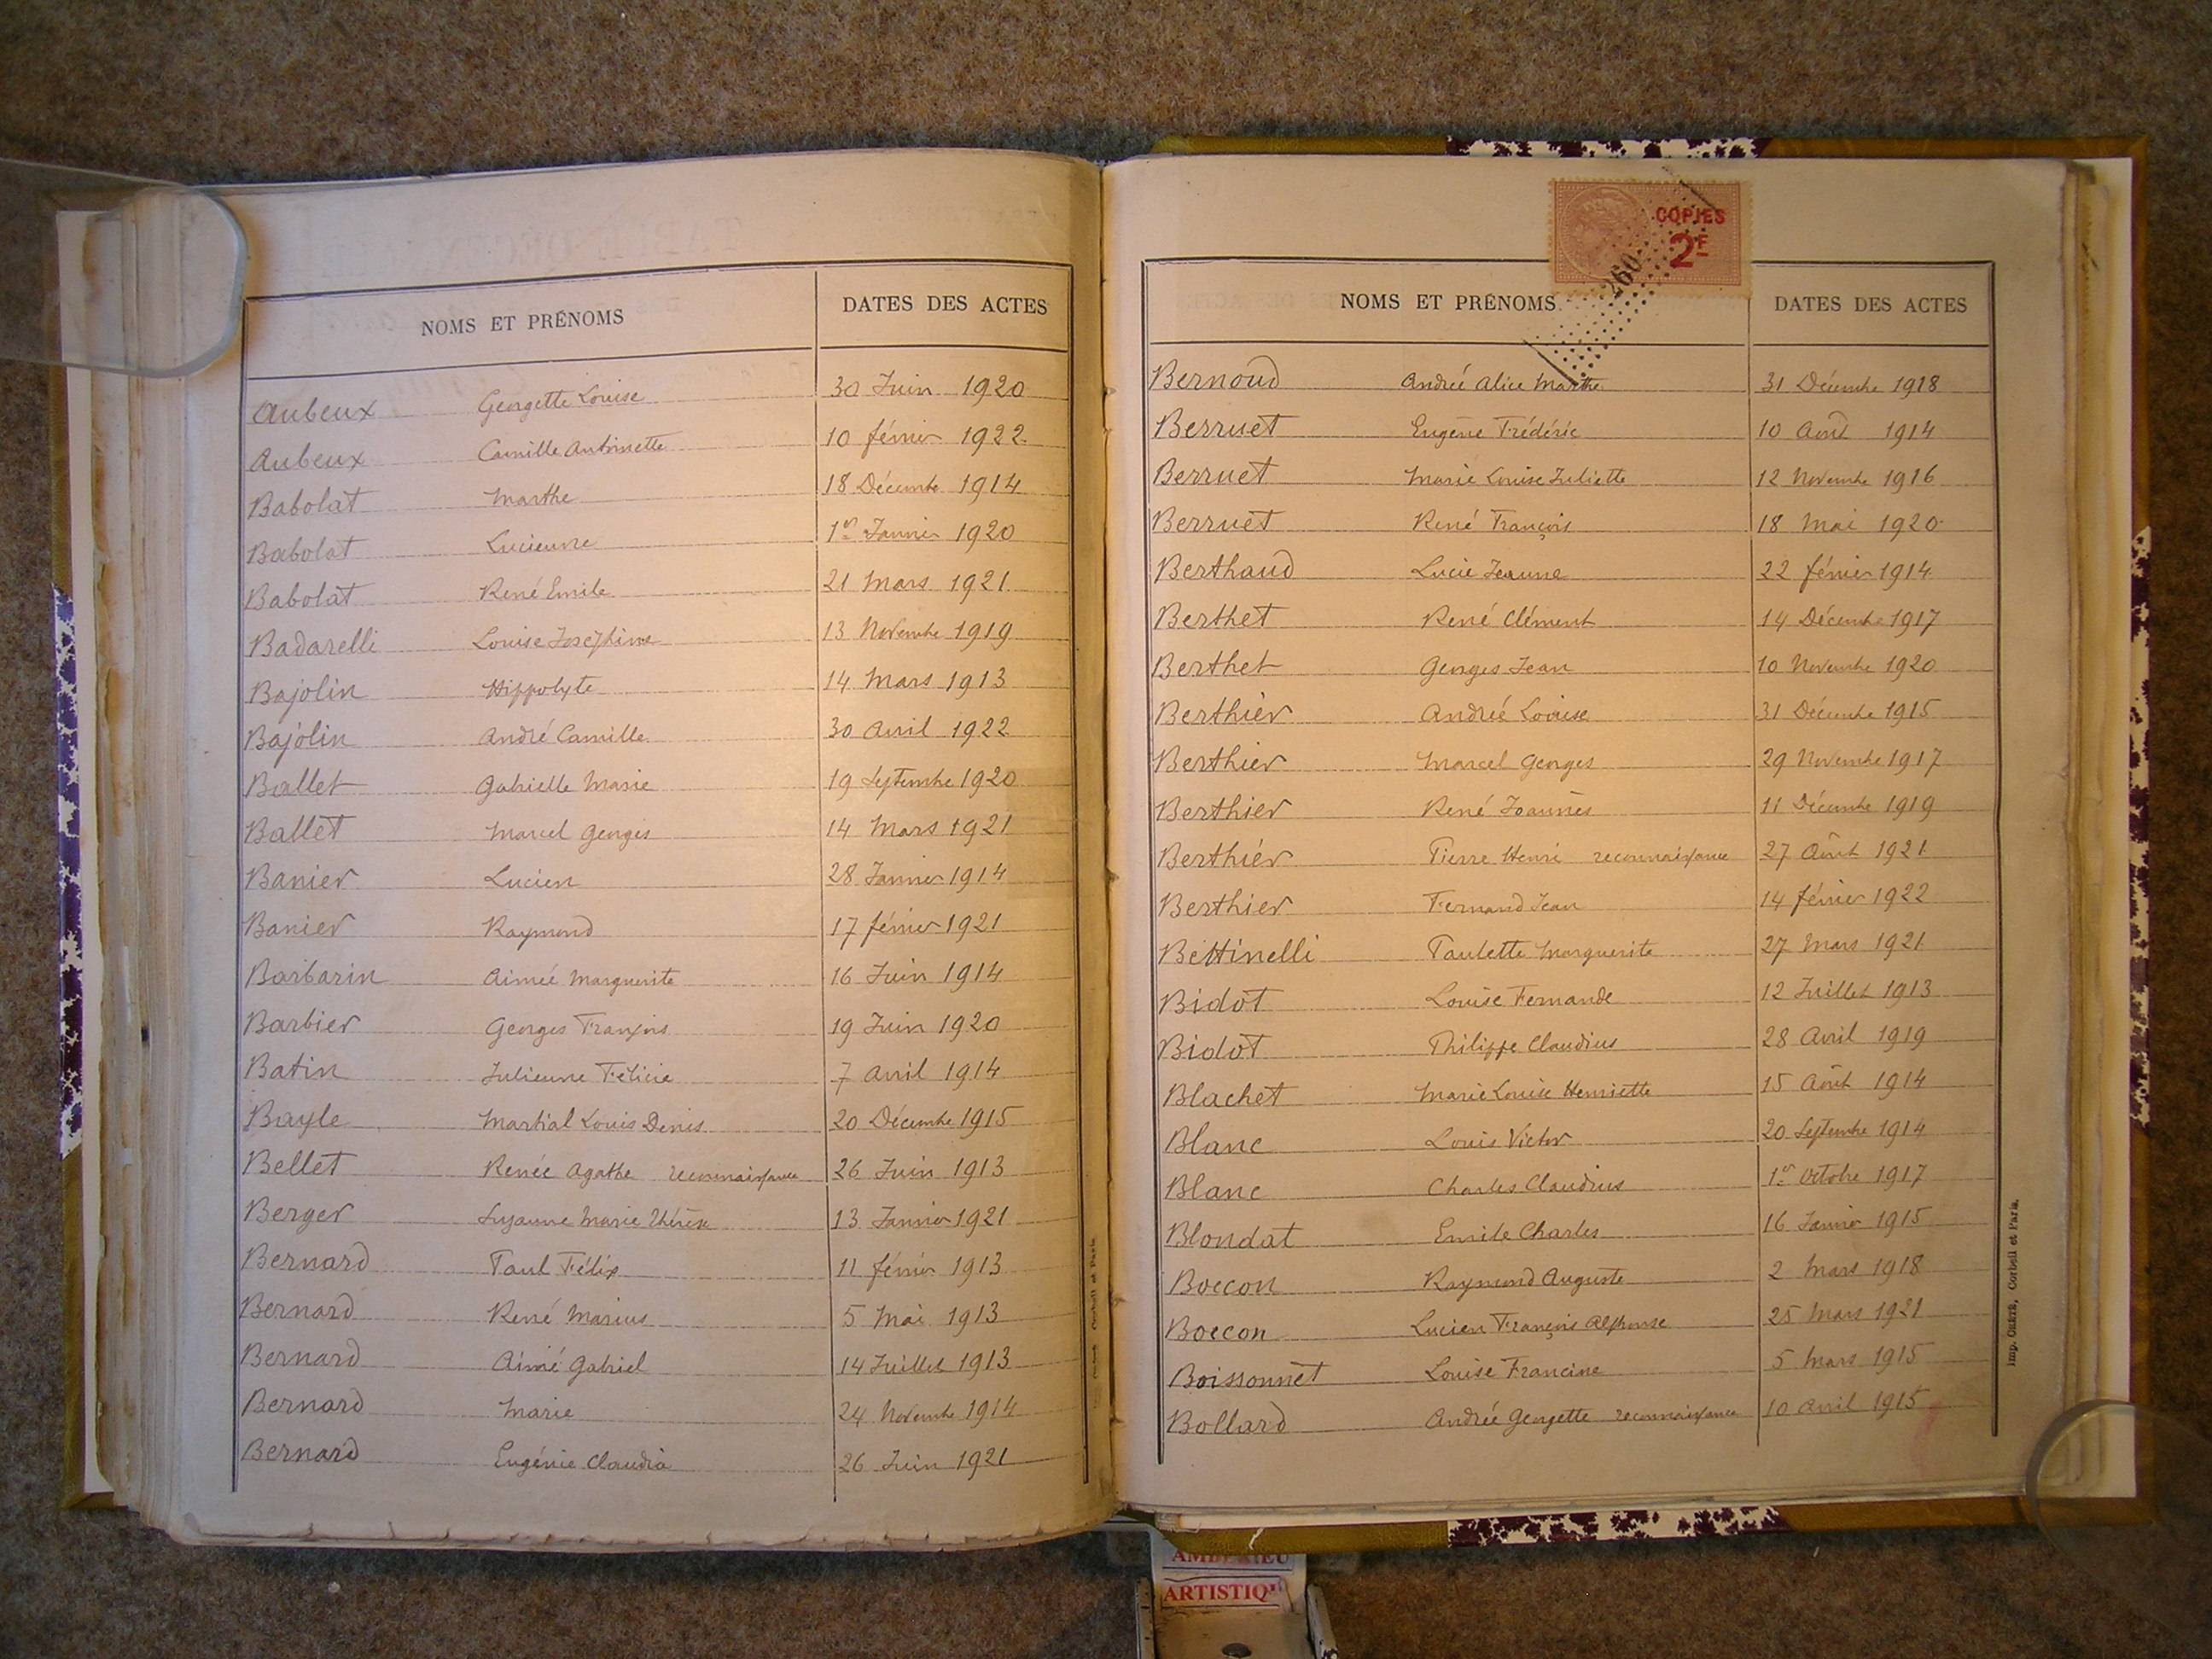 NOMS ET PRÉNOMS DATES DES ACTES
Aubeux Georgette Louise 30 Juin 1920
Aubeux Camille Antoinette 10 février 1922
Babolat Marthe 18 Décembre 1914
Babolat Lucienne 1er Janvier 1920
Babolat René Emile 21 Mars 1921
Badarelli Louise Joséphine 13 Novembre 1919
Bajolin Hippolyte 14 Mars 1913
Bajolin André Camille 30 Avril 1922
Ballet Gabrielle Marie 19 Septembre 1920
Ballet Marcel Georges 14 Mars 1921
Banier Lucien 28 Janvier 1914
Banier Raymond 17 février 1921
Barbarin Aimée Marguerite 16 Juin 1914
Barbier Georges François 19 Juin 1920
Batin Julienne Félicie 7 Avril 1914
Bayle Martial Louis Denis 20 Décembre 1915
Bellet Renée Agathe reconnaissance 26 Juin 1913
Berger Suzanne Marie Thérèse 13 Janvier 1921
Bernard Paul Félix 11 février 1913
Bernard René Marius 5 Mai 1913
Bernard Aimé Gabriel 14 Juillet 1913
Bernard Marie 24 Novembre 1914
Bernard Eugénie Claudia 26 Juin 1921
COPIES
2F
260
NOMS ET PRÉNOMS DATES DES ACTES
Bernoud André Alice Marthe 31 Décembre 1918
Berruet Eugène Frédéric 10 Août 1914
Berruet Marie Louise Juliette 12 Novembre 1916
Berruet René François 18 Mai 1920
Berthaud Lucie Jeanne 22 février 1914
Berthet René Clément 14 Décembre 1917
Berthet Georges Jean 10 Novembre 1920
Berthier Andrée Louise 31 Décembre 1915
Berthier Marcel Georges 29 Novembre 1917
Berthier René Joannès 11 Décembre 1919
Berthier Pierre Henri reconnaissance 27 Août 1921
Berthier Fernand Jean 14 février 1922
Bettinelli Paulette Marguerite 27 Mars 1921
Bidot Louise Fernande 12 Juillet 1913
Bidot Philippe Claudius 28 Avril 1919
Blachet Marie Louise Henriette 15 Août 1914
Blanc Louis Victor 20 Septembre 1914
Blanc Charles Claudius 1er Octobre 1917
Blondat Emile Charles 16 Janvier 1915
Boccon Raymond Auguste 2 Mars 1918
Boccon Lucien François Alphonse 25 Mars 1921
Boissonnet Louise Francine 5 Mars 1915
Bollard Andrée Georgette reconnaissance 10 Avril 1915
Imp. CRÉTÉ, Corbeil et Paris.
AMBÉRIEU